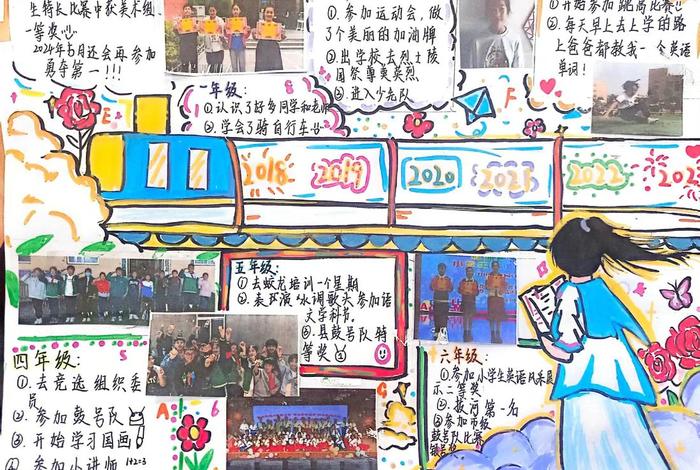 生特长比赛中获美术组
一等奖
2024年5月还会再参加
勇夺第一!!!
①参加运动会，做
了个美丽的加油牌
②出学校去烈士陵
园祭尊英烈
③进入少先队
开始参加跳高比赛
②每天早上去上学的路
上爸爸都教我一个英语
单词!
一年级:
①认识了好多同学和老师
②学会了骑自行车
E
F
2018
2019
2020
2021
2022
五年级:
①去蛟龙培训一个星期
②表演"水调歌头参加语
文学科节。
③县鼓号队特
等奖
四年级:
①去竞选组织委
员
②参加鼓号队
③开始学习国画
④参加小讲师
1+2=3
S
A
6
G
六年级:
①参加小学生英语风采展
示二等奖
②拔河第一名
③参加市级
鼓号队比赛
银号奖